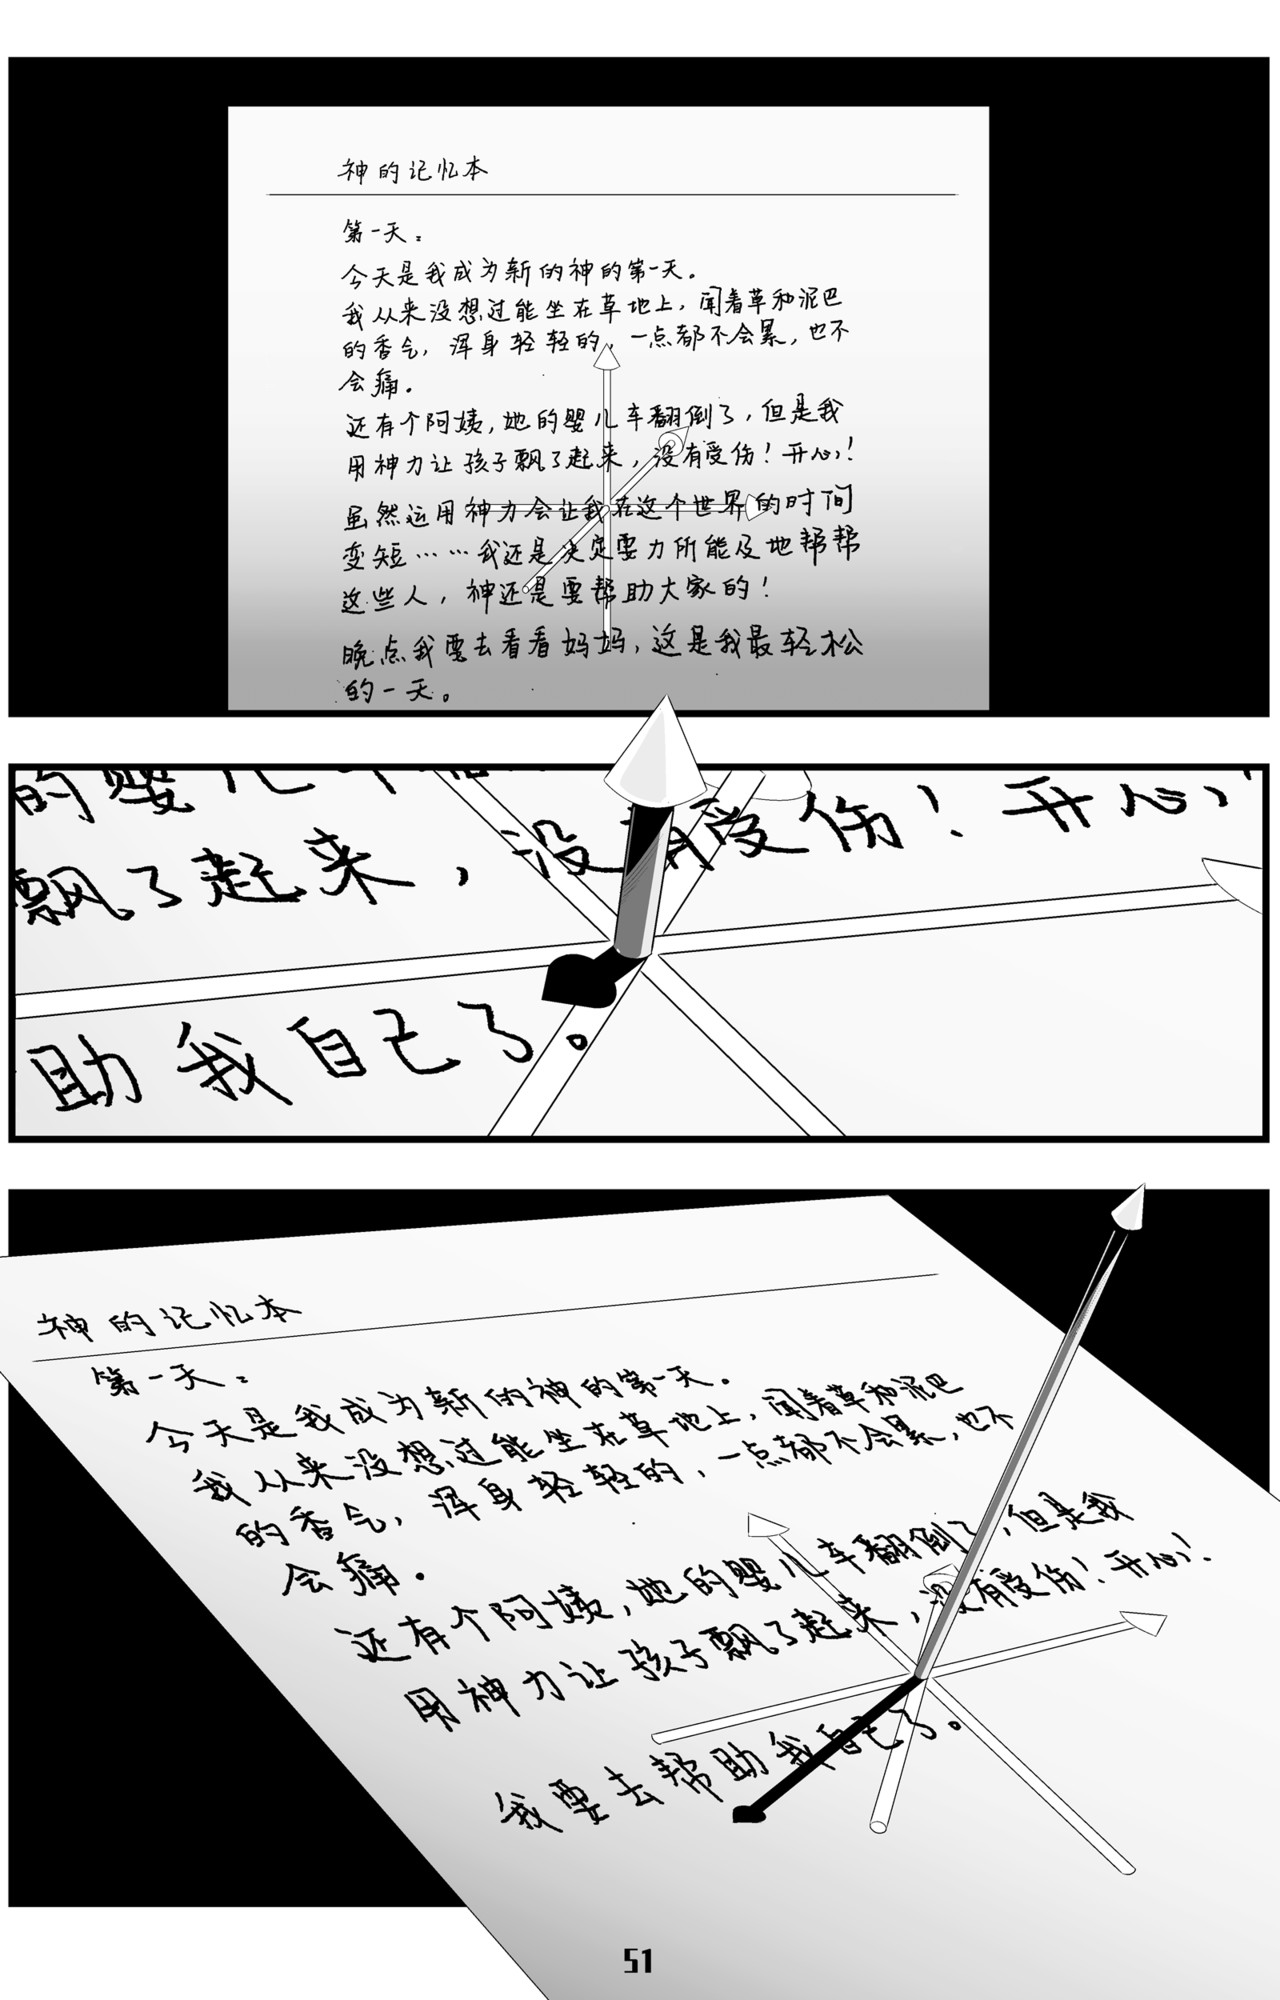 神的记忆本
第一天：
今天是我成为新的神的第一天。
我从来没想过能坐在草地上，闻着草和泥巴
的香气，浑身轻轻的，一点都不会累，也不
会痛。
还有个阿姨，她的婴儿车翻倒了，但是我
用神力让孩子飘了起来，没有受伤！开心！
虽然运用神力会让我在这个世界的时间
变短……我还是决定要力所能及地帮帮
这些人，神还是要帮助大家的！
晚点我要去看看妈妈，这是我最轻松
的一天。
的婴儿车
飘了起来，没有受伤！开心！
助我自己了。
神的记忆本
第一天：
今天是我成为新的神的第一天。
我从来没想过能坐在草地上，闻着草和泥巴
的香气，浑身轻轻的，一点都不会累，也不
会痛。
还有个阿姨，她的婴儿车翻倒了，但是我
用神力让孩子飘了起来，没有受伤！开心！
我要去帮助我自己了。
51